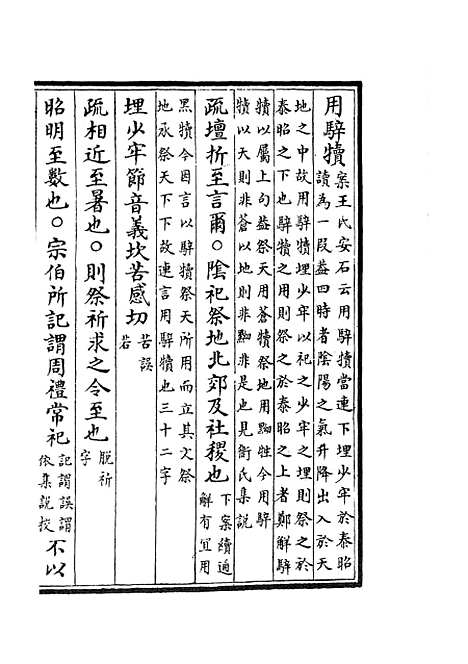 用騂犢案王氏安石云用騂犢當連下埋少牢於泰昭
讀為一段葢四時者陰陽之氣升降出入於天
地之中故用騂犢埋少牢以祀之少牢之埋則祭之於
泰昭之下也騂犢之用則祭之於泰昭之上者鄭解騂
犢以屬上句葢祭天用蒼犢祭地用黝牲今用騂
犢以天則非蒼以地則非黝非是也見衛氏集說
疏壇折至言爾。隂祀祭地北郊及社稷也下案續通
解有宜用
黑犢今因言以騂犢祭天所用而立其文祭
地承祭天下下故連言用騂犢也三十二字
埋少牢節音義坎苦感切苦誤
若
疏相近至暑也。則祭祈求之令至也脫祈
字
昭明至數也。宗伯所記謂周禮常祀記謂誤謂
依集說挍不以